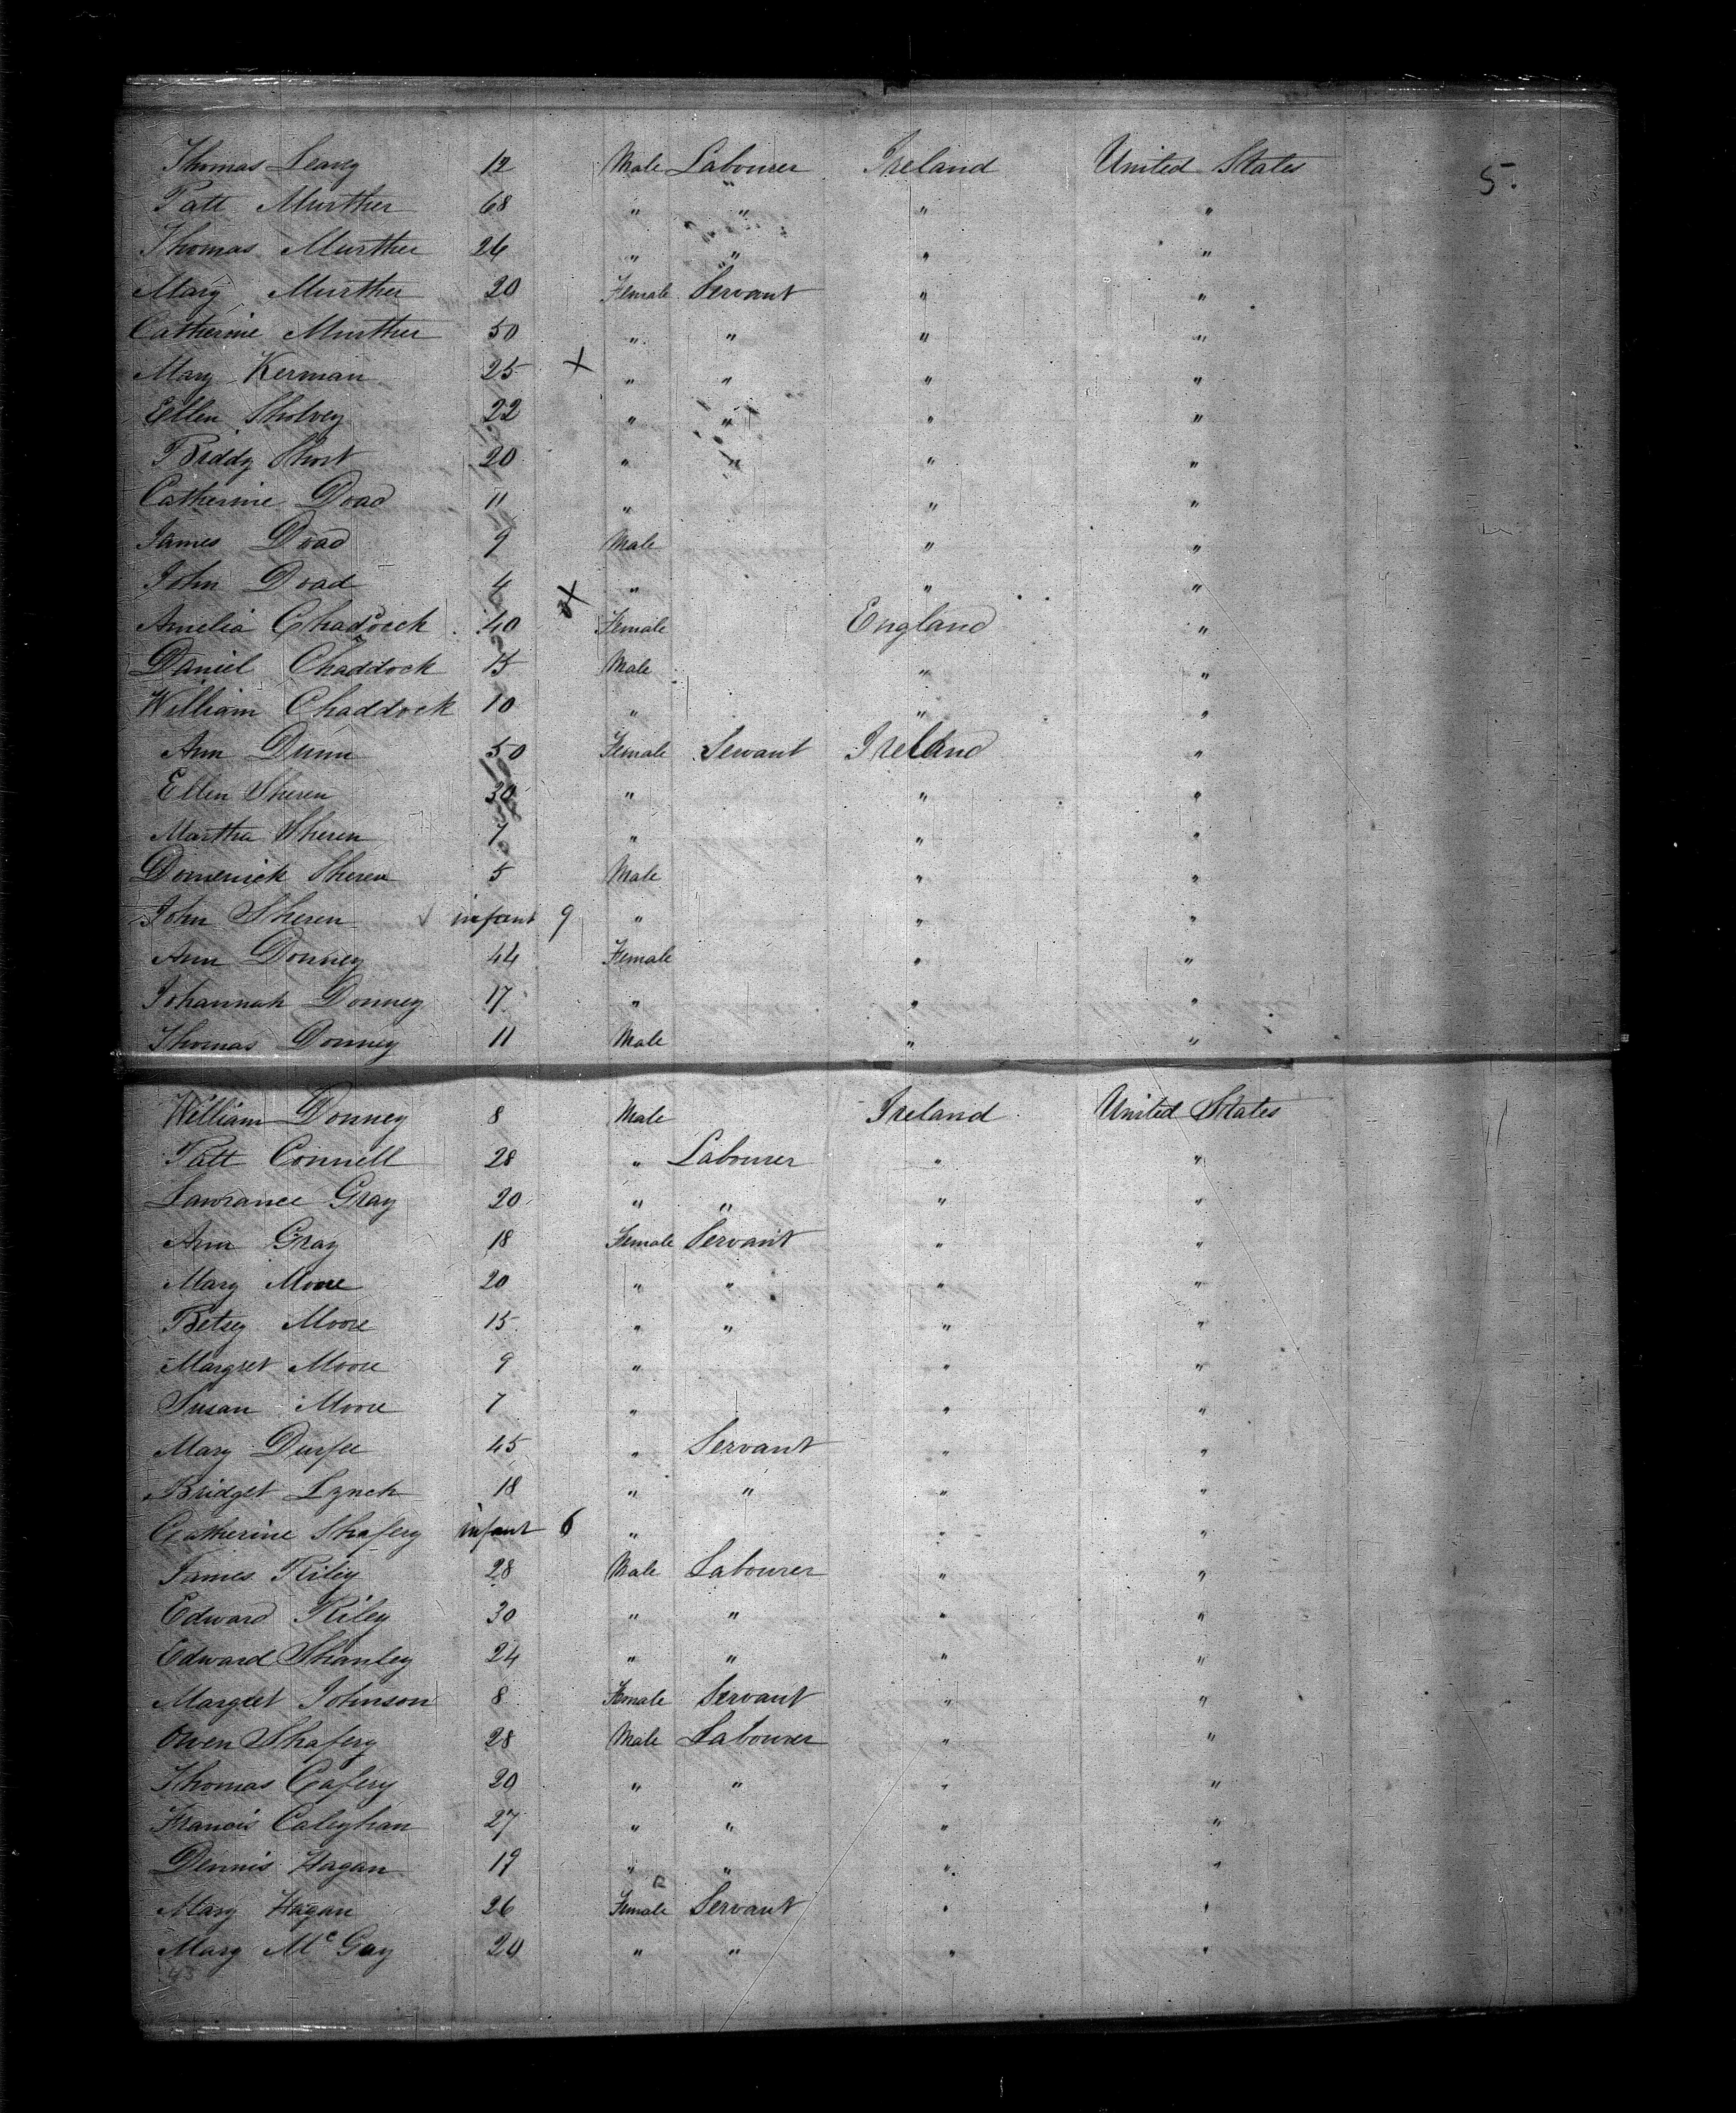 5.
Thomas Leavy 12 Male Labourer Ireland United States
Patt Murther 68 " " " "
Thomas Murther 26 " " " "
Mary Murther 20 Female Servant " "
Catherine Murther 50 " " " "
Mary Kerman 25 X " " " "
Ellen Sholvey 22 " " " "
Biddy Short 20 " " " "
Catherine Doad 11 " " "
James Doad 9 Male " "
John Doad 4 " " "
Amelia Chadock 40 X Female England "
Daniel Chaddock 15 Male " "
William Chaddock 10 " " "
Ann Dunn 50 Female Servant Ireland "
Ellen Sheren 30 " " "
Martha Sheren 7 " " "
Domenick Sheren 5 Male " "
John Sheren infant 9 " " "
Ann Donney 44 Female " "
Johannah Donney 17 " " "
Thomas Donney 11 Male " "
William Donney 8 Male Ireland United States
Patt Connell 28 " Labourer " "
Lawrance Gray 20 " " " "
Ann Gray 18 Female Servant " "
Mary Moore 20 " " " "
Betsey Moore 15 " " " "
Margret Moore 9 " " "
Susan Moore 7 " " "
Mary Durfee 45 " Servant " "
Bridget Lynch 18 " " " "
Catherine Shafery infant 6 " " "
James Riley 28 Male Labourer " "
Edward Riley 30 " " " "
Edward Shanley 24 " " " "
Margret Johnson 8 Female Servant " "
Owen Shafery 28 Male Labourer " "
Thomas Cafery 20 " " " "
Francis Caleghan 27 " " " "
Dennis Hagan 19 " " " "
Mary Hagan 26 Female Servant " "
Mary McGay 20 " " " "
43